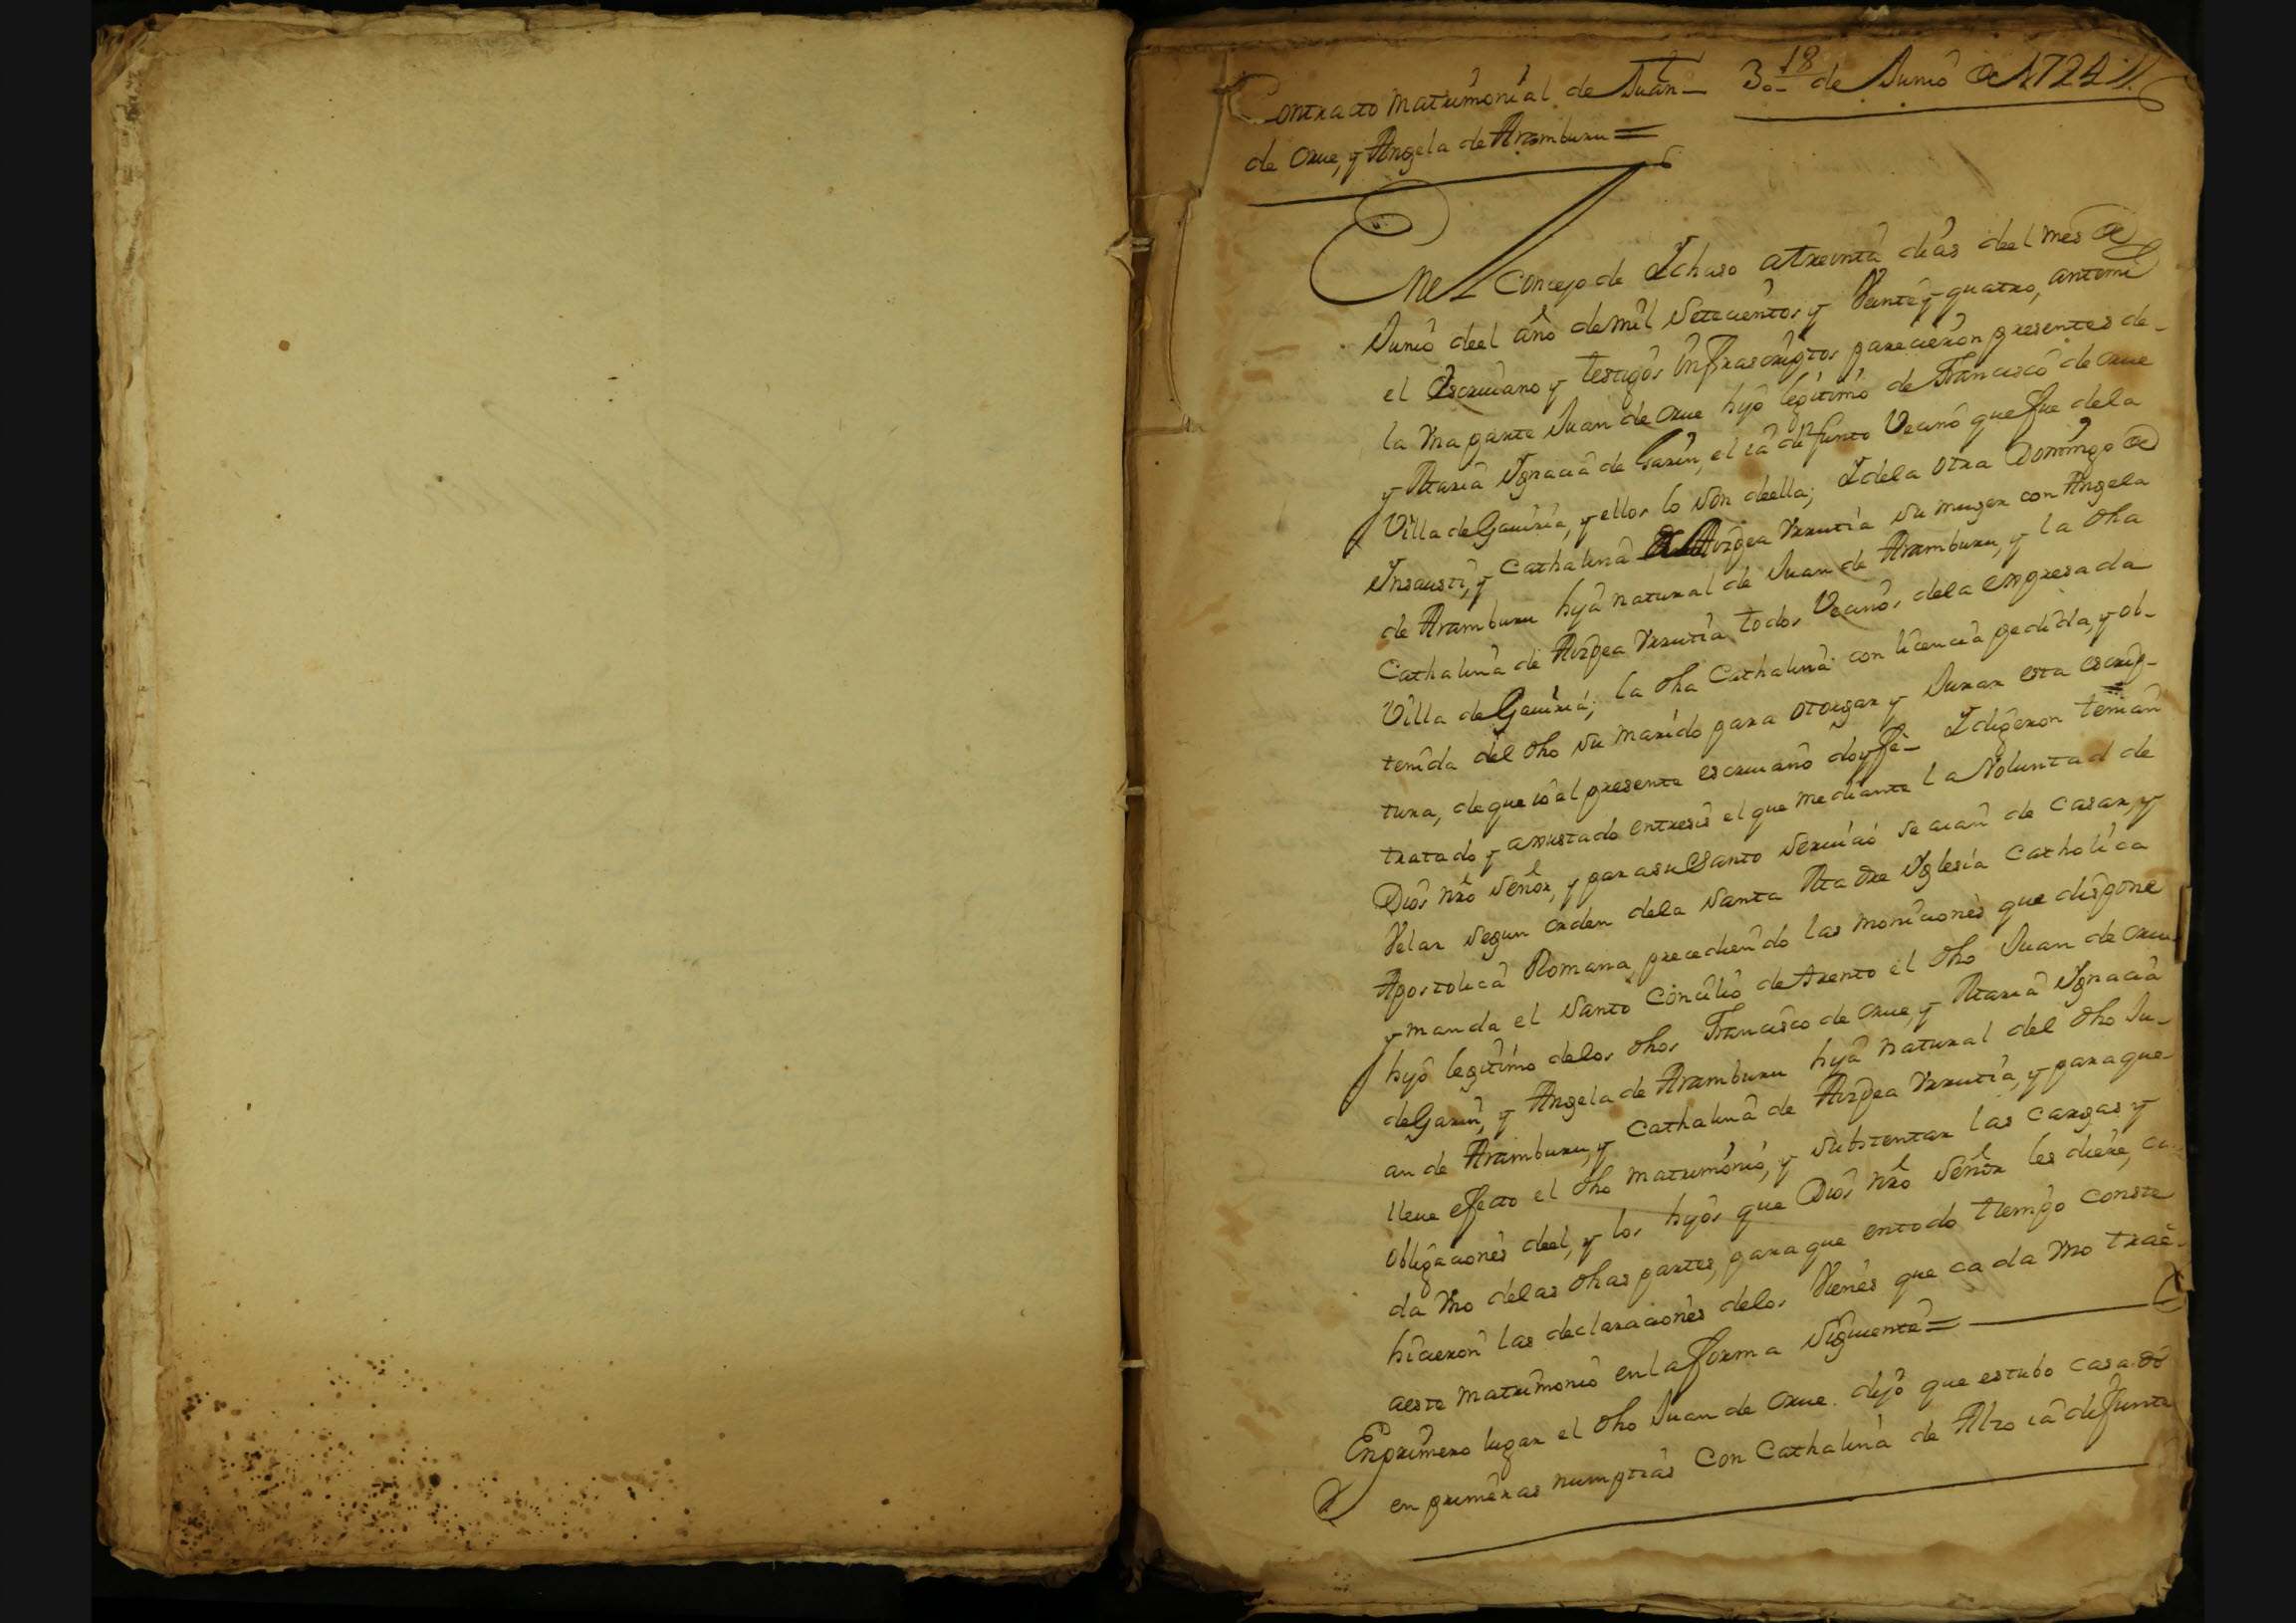 Contracto Matrimonial de Juan
de Orue, y Angela de Aramburu =
30 de Junio de 1724 //.
18
En el Concejo de Ychaso a treinta dias deel mes de
Junio deel año de mil setecientos y Veinte y quatro, antemi
el Escriuano y testigos Infrascriptos parecieron presentes de
la Vna parte Juan de Orue hijo legitimo de Francisco de Orue
y Maria Ygnacia de Garin, el ia difunto Vecino que fue dela
Villa de Gauiria, y ellos lo son deella; Y dela otra Domingo de
Insausti, y Cathalina de Aizpea Vrrutia su muger con Angela
de Aramburu hija natural de Juan de Aramburu, y la dha
Cathalina de Aizpea Vrrutia todos Vecinos dela expresada
Villa de Gauiria; la dha Cathalina con licencia pedida, y ob-
tenida del dho su marido para otorgar y Jurar esta escrip-
tura, de que io el presente escriuano doy fe= Y digeron tenian
tratado y ajustado entresis el que mediante la Voluntad de
Dios nro señor, y para su Santo seruicio se aian de casar, y
Velar segun orden dela Santa Madre Yglesia Catholica
Apostolica Romana precediendo las moniciones que dispone
y manda el Santo Concilio de trento el dho Juan de Orue
hijo legitimo delos dhos Francisco de Orue, y Maria Ygnacia
de Garin, y Angela de Aramburu hija natural del dho Ju-
an de Aramburu, y Cathalina de Aizpea Vrrutia, y para que
lleue efecto el dho matrimonio, y substentar las cargas y
obligaciones deel, y los hijos que Dios nro señor les diere, ca-
da Vno delas dhas partes, para que entodo tiempo conste
hicieron las declaraciones delos Vienes que cada Vno trae
aeste matrimonio enla forma siguiente =
En primero lugar el dho Juan de Orue dijo que estubo casado
en primeras numptias con Cathalina de Alzo ia difunta